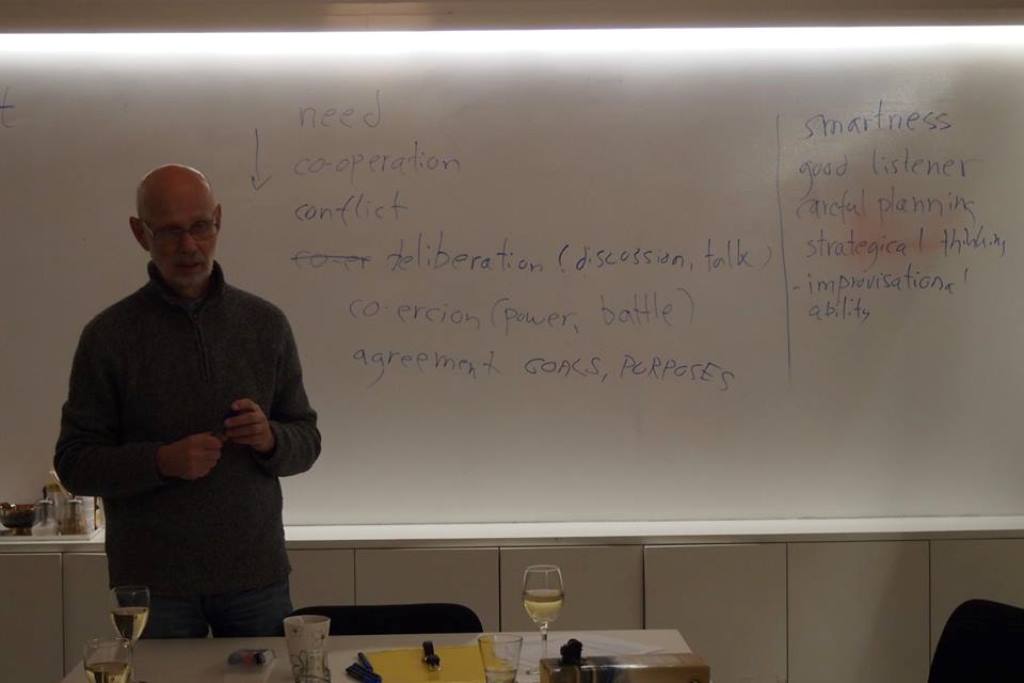 t
need
co-operation
conflict
co-er deliberation (discussion, talk)
co-ercion (power, battle)
agreement GOALS, PURPOSES
smartness
good listener
careful planning
strategical thinking
- improvisational
ability